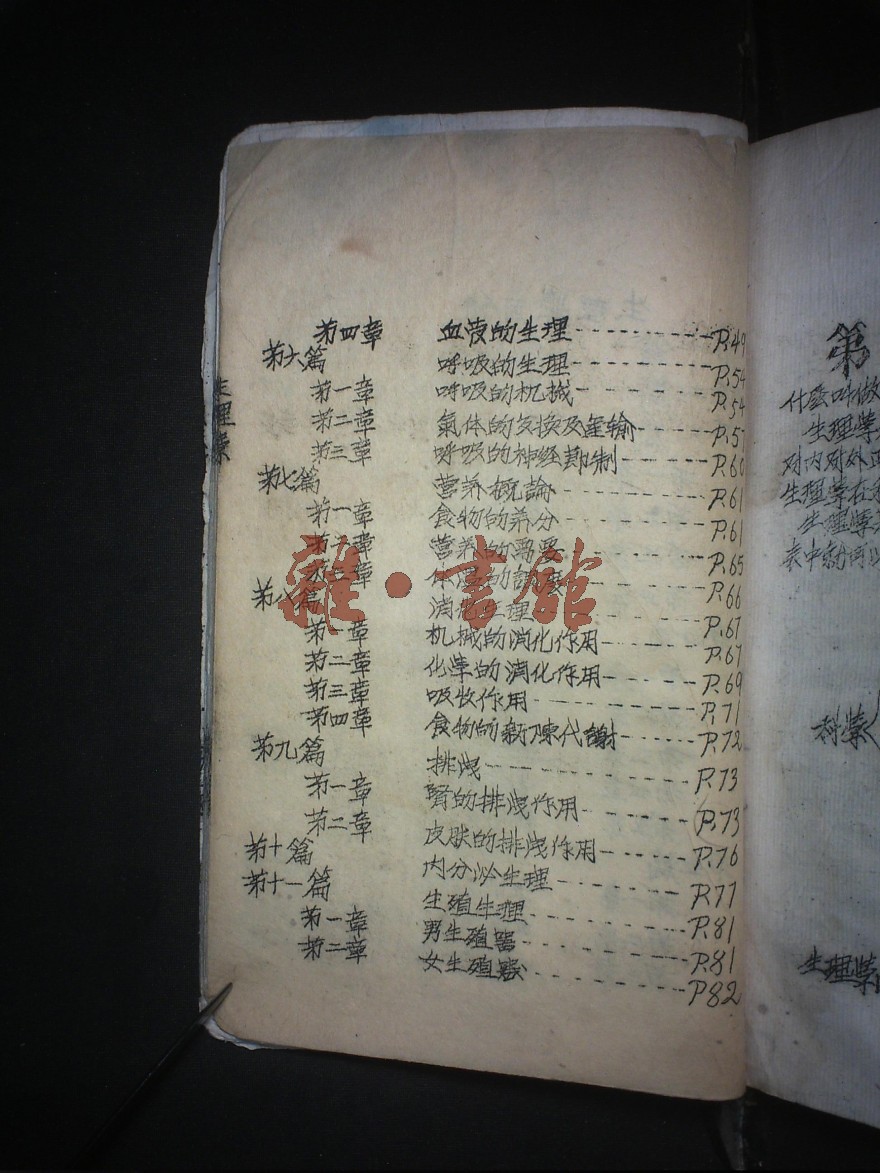 第四章 血液的生理 P.49
第六篇 呼吸的生理 P.54
第一章 呼吸的机械 P.54
第二章 氣体的交换及运输 P.57
第三章 呼吸的神经節制 P.60
第七篇 营养概論 P.61
第一章 食物的养分 P.61
第二章 营养的需要 P.65
第三章 体温的調 P.66
第八篇 消化生理 P.67
第一章 机械的消化作用 P.67
第二章 化学的消化作用 P.69
第三章 吸收作用 P.71
第四章 食物的新陳代謝 P.72
第九篇 排洩 P.73
第一章 腎的排洩作用 P.73
第二章 皮肤的排洩作用 P.76
第十篇 内分泌生理 P.77
第十一篇 生殖生理 P.81
第一章 男生殖器 P.81
第二章 女生殖器 P82
生理学
雜·書館
第
什麼叫做
生理学
对内对外
生理学在
生理学
表中就可以
科学
生理学